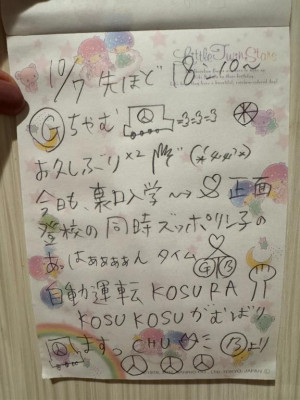 Little Twin Stars
10/7 先ほど 18:10〜
Gちゃむ =3=3=3
お久しぶり×2
今日も、裏口入学〜→♡正面
登校の同時ズッポリン子の
あっはぁぁぁぁん タイム
G B
自動運転 KOSURA
KOSUKOSU がむばり
ますっ CHU
Bより